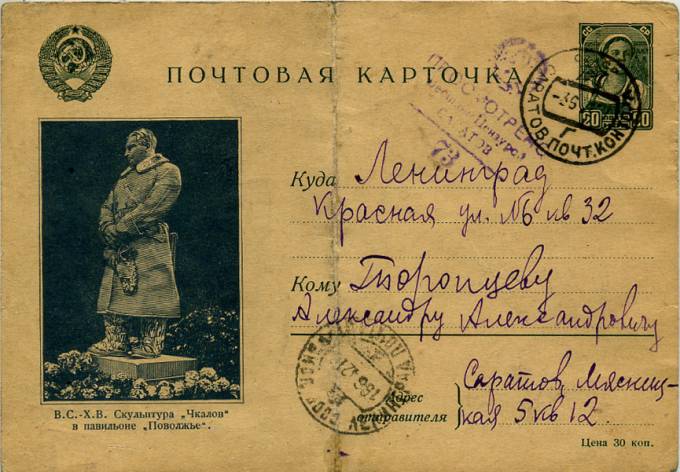 ПОЧТОВАЯ КАРТОЧКА
СС СР
20 20
ПРОСМОТРЕНО
Военной Цензурой
САРАТОВ
73
САРАТОВ.ПОЧТ.КОН
Куда Ленинград
Красная ул. №6 кв 32
Кому Торопцеву
Александру Александровичу
Адрес отправителя
Саратов, Мясниц-
кая 5 кв 12.
В.С.-Х.В. Скульптура „Чкалов"
в павильоне „Поволжье".
Цена 30 коп.